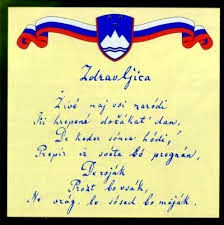 Zdravljica
Živé naj vsi naródi
Ki hrepené dočákat' dan,
De koder sónce hódi,
Prepir iz svéta bo pregnán,
De roják
Prost bo vsák,
Ne vrag, le sósed bo meják.